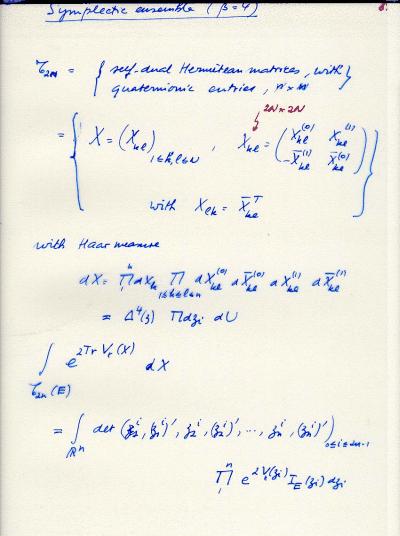 Symplectic ensemble (β=4)
τ₂ₙ = { self-dual Hermitean matrices, with
quaternionic entries, n×n }
2N×2N
= { X = (X_{kl})_{1≤k,l≤N}, X_{kl} = ( X_{kl}^{(0)} X_{kl}^{(1)}
-X̄_{kl}^{(1)} X̄_{kl}^{(0)} )
with X_{lk} = X̄_{kl}^T }
with Haar measure
dX = ∏₁ⁿ dX_k ∏_{1≤k≤l≤n} dX_{kl}^{(0)} dX̄_{kl}^{(0)} dX_{kl}^{(1)} dX̄_{kl}^{(1)}
= Δ⁴(z) ∏dz_i dU
∫_{τ₂ₙ(E)} e^{2Tr V_t(X)} dX
= ∫_{ℝⁿ} det (z₁^i, (z₁^i)′, z₂^i, (z₂^i)′, ..., z_n^i, (z_n^i)′)_{0≤i≤2n-1}
∏₁ⁿ e^{2V_t(z_i)} I_E(z_i) dz_i